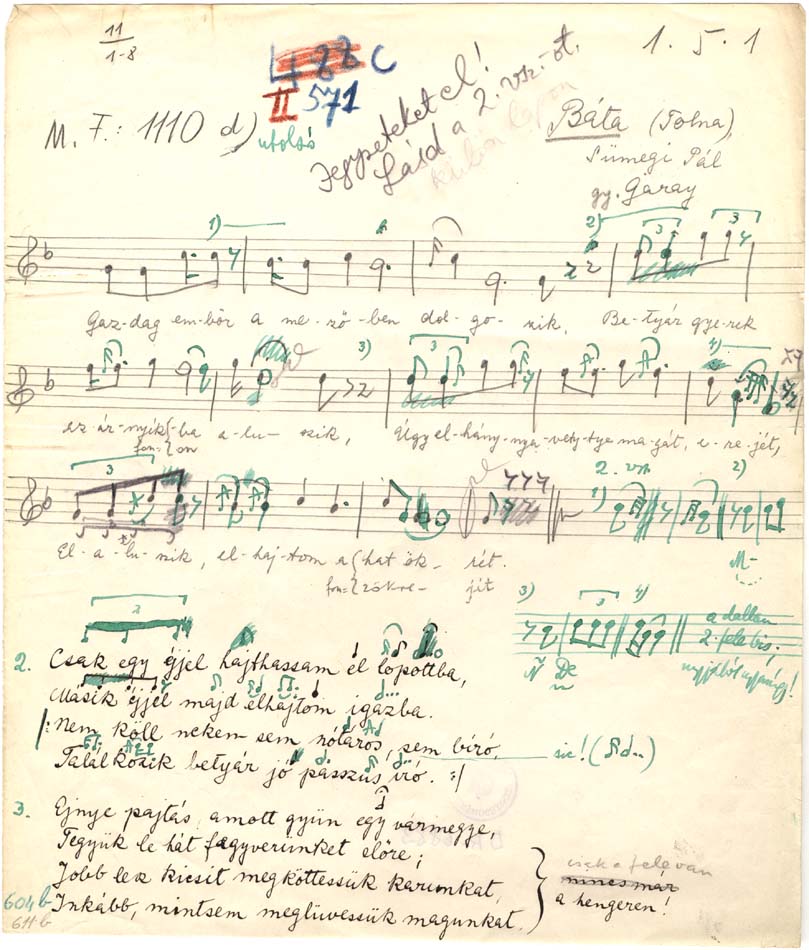 11
1-8
488 C
II 571
1. 5. 1
M. F.: 1110 d)
utolsó
Jegyzeteket el!
Lásd a 2. vsz.-ot.
külön lapon
Báta (Tolna),
Sümegi Pál
gy. Garay
1) 2) 3 3
Gaz-dag em-bör a me-ző-ben dol-go-zik, Be-tyár gye-rek
3 3) 4)
ez ár-nyik-ba a-lu-szik, Úgy el-hány-nya-vety-tye ma-gát, e-re-jét,
fon= on
3
2. vsz 1) 2)
El-a-lu-szik, el-haj-tom a hat ök-rét.
fon= zök-re-jit
M-
3) 3 4)
a dallam
2. fele bis,
3
2. Csak egy éjjel hajthassam el lopottba,
Másik éjjel majd elhajtom igazba.
|: Nem köll nekem sem nótáros, sem bíró,
sic!
Találkozik betyár jó passzus író. :|
3. Ejnye pajtás, amott gyün egy vármegye,
Tegyük le hát fegyverünket előre;
Jobb lesz kicsit megköttessük karunkat,
Inkább, mintsem meglüvessük magunkat.
csak a fele van
nincs már
a hengeren!
604 b
611 b